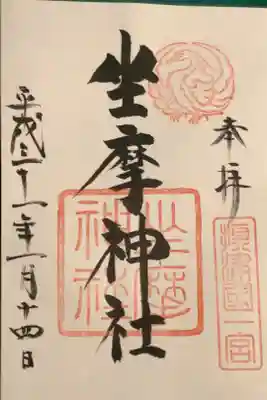 奉拝
摂津国一宮
坐摩神社
坐摩神社
平成三十一年一月十四日